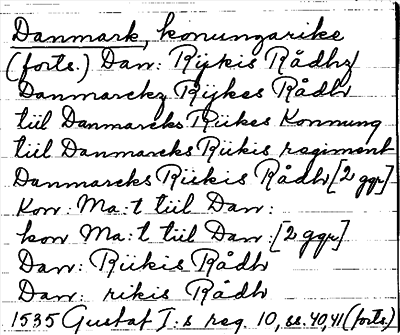 Danmark, konungarike
(forts.) Dan: Rijkis Rådhz
Danmarckz Rijkes Rådh
tiil Danmarcks Riikes Konnung
tiil Danmarcks Riikis regiment
Danmarcks Riikis Rådh [2 ggr]
Kon: Ma:t tiil Dan:
kon Ma:t tiil Dan: [2 ggr]
Dan: Riikis Rådh
Dan: rikis Rådh
1535 Gustaf I:s reg. 10, ss. 40, 41 (forts.)